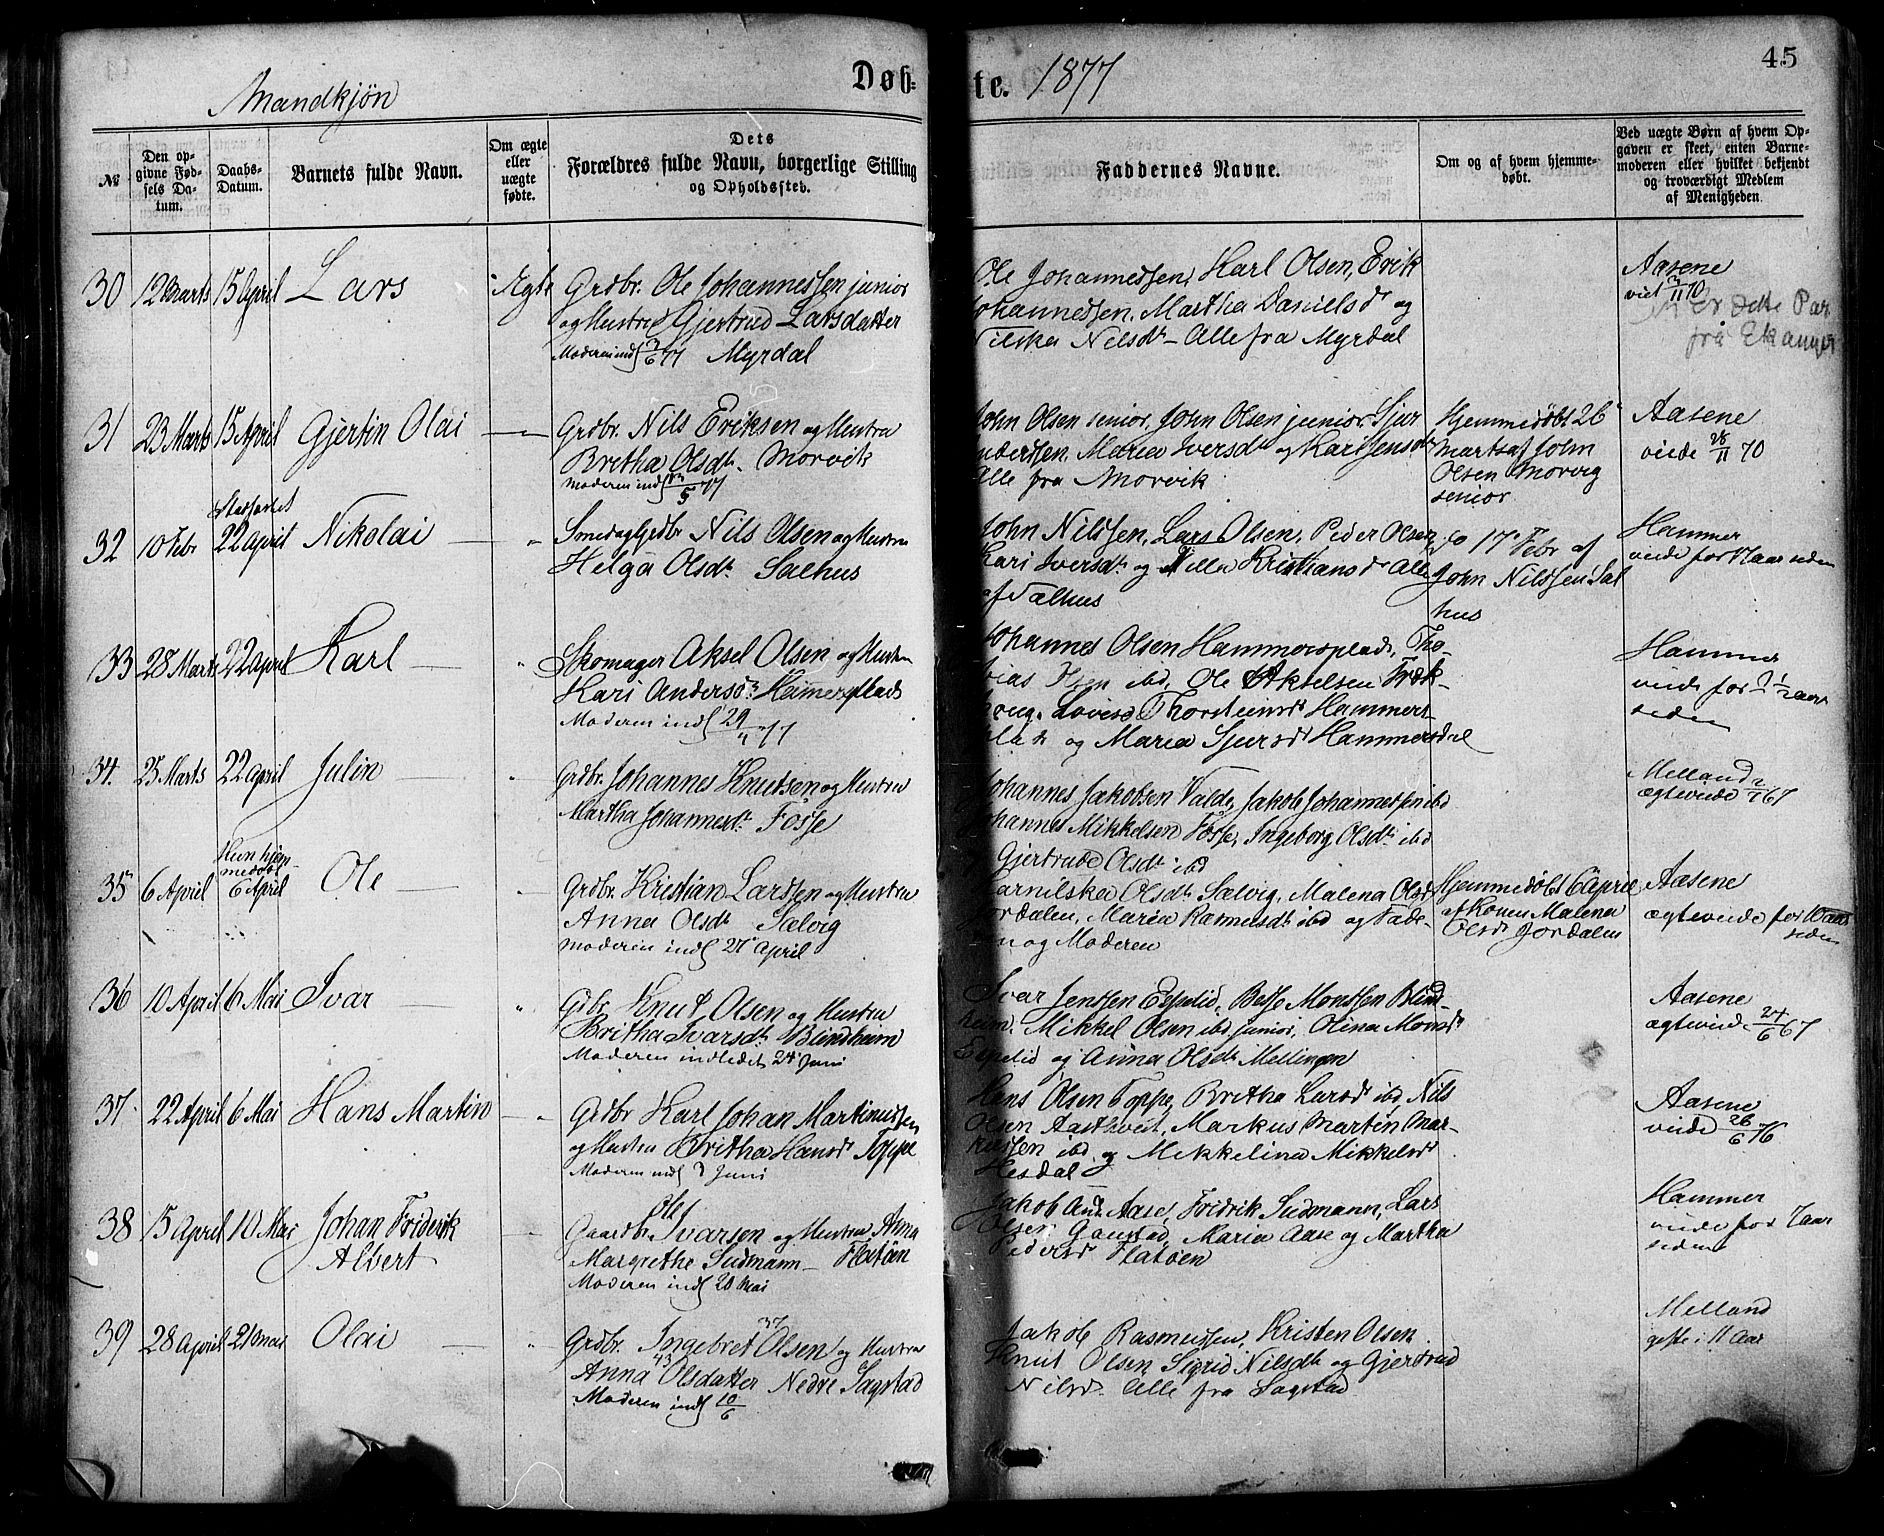 45
Mandkjön
Døb-
te. 1877
№
Den op-
givne Fød-
sels Da-
tum.
Daabs-
Datum.
Barnets fulde Navn.
Om ægte
eller
uægte
fødte.
Dets
Forældres fulde Navn, borgerlige Stilling
og Opholdssted.
Faddernes Navne.
Om og af hvem hjemme-
døbt.
Ved uægte Børn af hvem Op-
gaven er skeet, enten Barne-
moderen eller hvilket bekjendt
og troværdigt Medlem
af Menigheden.
30 12 Marts 15 April Lars Ægte
Grdbr. Ole Johannessen junior
og Hustru Gjertrud Larsdatter
Moderen indl 3/6 77 Myrdal
Ole Johannessen, Karl Olsen, Erik
Johannessen, Martha Danielsd og
Nilska Nilsdt Alle fra Myrdal
Aasene
viet 3/11 70
Er dette Par
frå Ekanger
31 23 Marts 15 April Gjertin Olai
Grdbr. Nils Eriksen og Hustru
Britha Olsdt. Morvik
Moderen indl 5 77
John Olsen senior, John Olsen junior, Sjur
Anderssen, Maria Iversdt og Kari Jensdt
Alle fra Morvik
Hjemmedöbt 26
Marts af John
Olsen Morvig
senior
Aasene
viede 28/11 70
32 10 Febr 22 April Nikolai
Nils Olsen og Hustru
Helga Olsdt. Salhus
John Nilssen, Lars Olsen, Peder Olsen
Kari Iversdt og Nilla Kristiansd Alle
af Salhus
17 Febr af
John Nilssen Sal
hus
Hammer
viede for 17 aar siden
33 28 Marts 22 April Karl
Skomager Aksel Olsen og Hustru
Kari Andersd Hammersplads
Moderen indl 29 77
Johannes Olsen Hammersplads, Tho-
bias ibid, Ole Akselsen
Lovise Thorsteinsdt Hammers-
plads og Maria Sjursdt Hammersdal
Hammer
viede for 7 1/2 aar
siden
34. 25 Marts 22 April Julin
Grdbr. Johannes Knutsen og Hustru
Martha Johannesdt. Fosse
Johannes Jakobsen Valde, Jakob Johannessen ibd
Johannes Mikkelsen Fosse, Ingeborg Olsdt ibd
Gjertrude Olsdt ibd
Melland
ægteviede 67
35 6 April Kun hjem-
medöbt
6 April Ole
Grdbr. Kristian Larssen og Hustru
Anna Olsdt Salvig
Moderen indl 21 April
Olsdt Salvig, Malena Olsd
Jordalen, Maria Rasmusdt ibd og Fade-
ren og Moderen
Hjemmedöbt 6 April
af Konen Malena
Olsdt Jordalen
Aasene
ægteviede for 10 aar
siden
36 10 April 6 Mai Ivar
Grdbr. Knut Olsen og Hustru
Britha Ivarsdt Blindheim
Moderen indledet 24 Juni
Ivar Jenssen Espelid, Besse Monssen Blind-
heim, Mikkel Olsen ibd junior, Olina Monsdt
Espelid og Anna Olsdt Mellingen
Aasene
ægteviede 24/6 67
37. 22 April 6 Mai Hans Martin
Grdbr Karl Johan Martinussen
og Hustru Britha Hansdt Toppe
Moderen indl 3 Juni
Hans Olsen Toppe, Britha Larsdt ibd, Nils
Olsen Aasthveit, Markus Martin Mar-
kussen ibd og Mikkelina Mikkelsdt
Hesdal
Aasene
viede 26/6 76
38 15 April 10 Mai Johan Friderik
Albert
Ole
Gaardbr. Ivarsen og Hustru Anna
Margrethe Sudmann Flatöen
Moderen indl 20 Mai
Jakob Aase, Fredrik Sudmann, Lars
Olsen Gaustad, Maria Aase og Martha
Pedersdt Flatöen
Hammer
viede for 7 aar
siden
39 28 April 21 Mai Olai
Grdbr. Ingebret 37 Olsen og Hustru
Anna 43 Olsdatter Nedre Sagstad
Moderen indl 10/6
Jakob Rasmussen, Kristen Olsen
Knut Olsen, Sigrid Nilsdt og Gjertrud
Nilsdt Alle fra Sagstad
Melland
gifte i 11 Aar